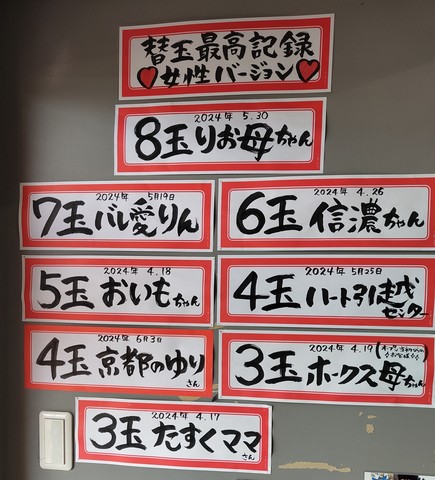 替玉最高記録
♥女性バージョン♥
2024年 5.30
8玉りお母ちゃん
2024年 5月19日
7玉バレ愛りん
2024年 4.26
6玉信濃ちゃん
2024年 4.18
5玉おいもちゃん
2024年 5月25日
4玉ハート引越センター
2024年 6月3日
4玉京都のゆりさん
2024年 4.19
3玉ホークス母ちゃん
2024年 4.17
3玉たすくママさん